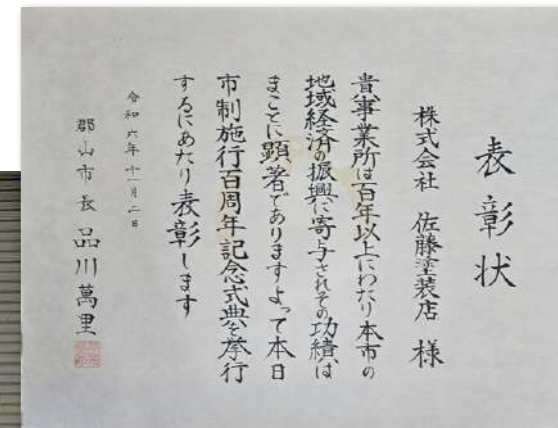 表彰状
株式会社 佐藤塗装店 様
貴事業所は百年以上にわたり本市の
地域経済の振興に寄与されその功績は
まことに顕著でありますよって本日
市制施行百周年記念式典を挙行
するにあたり表彰します
令和六年十一月二日
郡山市長 品川萬里